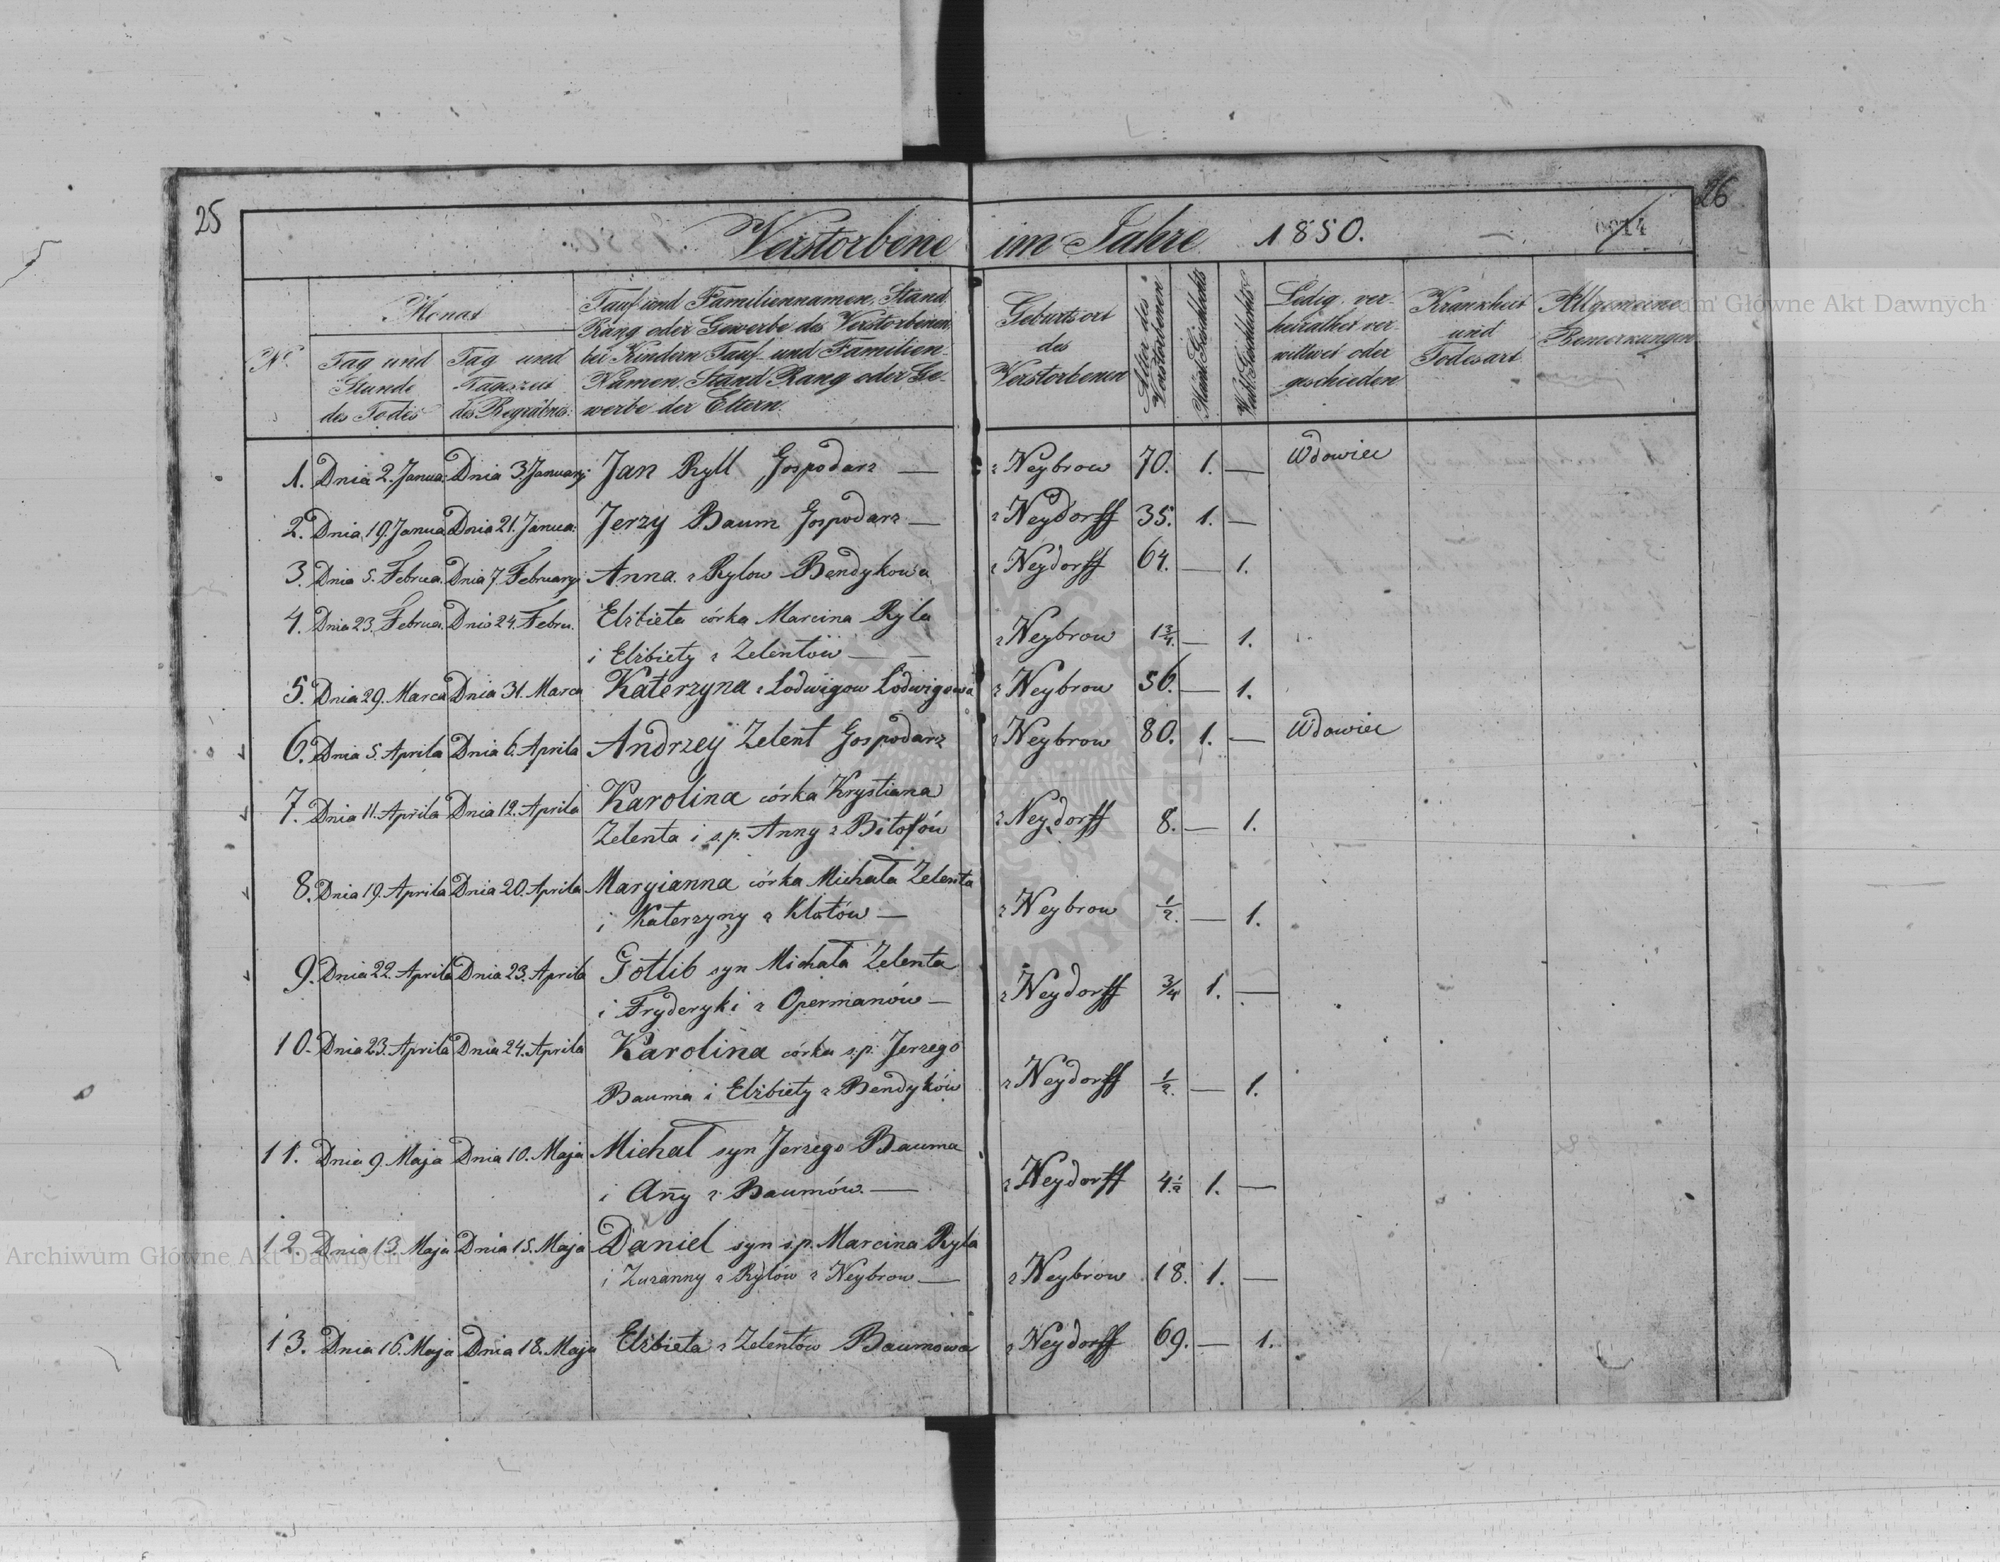 25
26
Verstorbene im Jahre 1850.
0014
Nr.
Monat
Tag und
Stunde
des Todes
Tag und
Tageszeit
des Begräbnis:
Tauf und Familiennamen, Stand,
Rang oder Gewerbe des Verstorbenen,
bei Kindern Tauf und Familien-
Namen, Stand Rang oder Ge-
werbe der Eltern.
Geburtsort
des
Verstorbenen
Alter des
Verstorbenen
Mänl. Geschlechts
Weibl. Geschlechts
Ledig, ver-
heirathet ver-
wittwet oder
geschieden
Krankheit
und
Todesart
Allgemeine
Bemerkungen
1. Dnia 2. Janua. Dnia 3. January Jan Ryll Gospodarz — z Neybrow 70. 1. — Wdowiec
2. Dnia 19. Janua Dnia 21. Janua. Jerzy Baum Gospodarz — z Neydorff 35. 1. —
3. Dnia 5. Februa. Dnia 7. February Anna z Rylow Bendykowa z Neydorff 64. — 1.
4. Dnia 23. Februa. Dnia 24. Febru. Elzbieta córka Marcina Ryla
i Elzbiety z Zelentów — z Neybrow 1 3/4. — 1.
5. Dnia 29. Marca Dnia 31. Marca Katerzyna z Lodwigow Lodwigowa z Neybrow 56. — 1.
6. Dnia 5. Aprila Dnia 6. Aprila Andrzey Zelent Gospodarz z Neybrow 80. 1. — Wdowiec
7. Dnia 11. Aprila Dnia 12. Aprila Karolina córka Krystiana
Zelenta i s.p. Anny z Bitofów z Neydorff 8. — 1.
8. Dnia 19. Aprila Dnia 20. Aprila Maryianna córka Michała Zelenta
i Katerzyny z Klotów — z Neybrow 1/2. — 1.
9. Dnia 22. Aprila Dnia 23. Aprila Gotlib syn Michała Zelenta
i Fryderyki z Opermanów — z Neydorff 3/4 1. —
10. Dnia 23. Aprila Dnia 24. Aprila Karolina córka s.p. Jerzego
Bauma i Elzbiety z Bendyków z Neydorff 1/2. — 1.
11. Dnia 9 Maja Dnia 10. Maja Michał syn Jerzego Bauma
i Añy z Baumów. — z Neydorff 4 1/2 1. —
12. Dnia 13. Maja Dnia 15. Maja Daniel syn s.p. Marcina Ryla
i Zuzanny z Rylów z Neybrow — z Neybrow 18. 1. —
13. Dnia 16. Maja Dnia 18. Maja Elzbieta z Zelentów Baumowa z Neydorff 69. — 1.
Archiwum Główne Akt Dawnych
Archiwum Główne Akt Dawnych